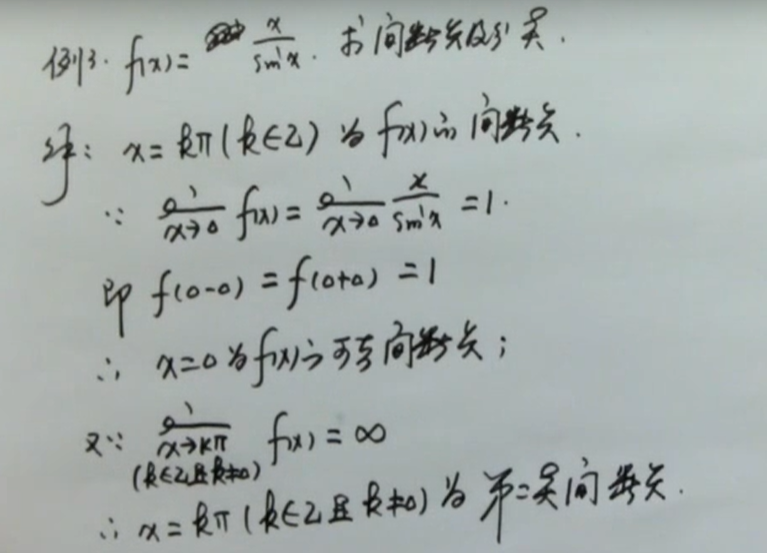 例3. f(x)= x/sin x. 求间断点及分类.
解: x=kπ(k∈Z)为f(x)的间断点.
∵ lim x→0 f(x)= lim x→0 x/sin x =1.
即 f(0-0)=f(0+0)=1
∴ x=0为f(x)的可去间断点;
又∵ lim x→kπ (k∈Z且k≠0) f(x)=∞
∴ x=kπ(k∈Z且k≠0)为第二类间断点.